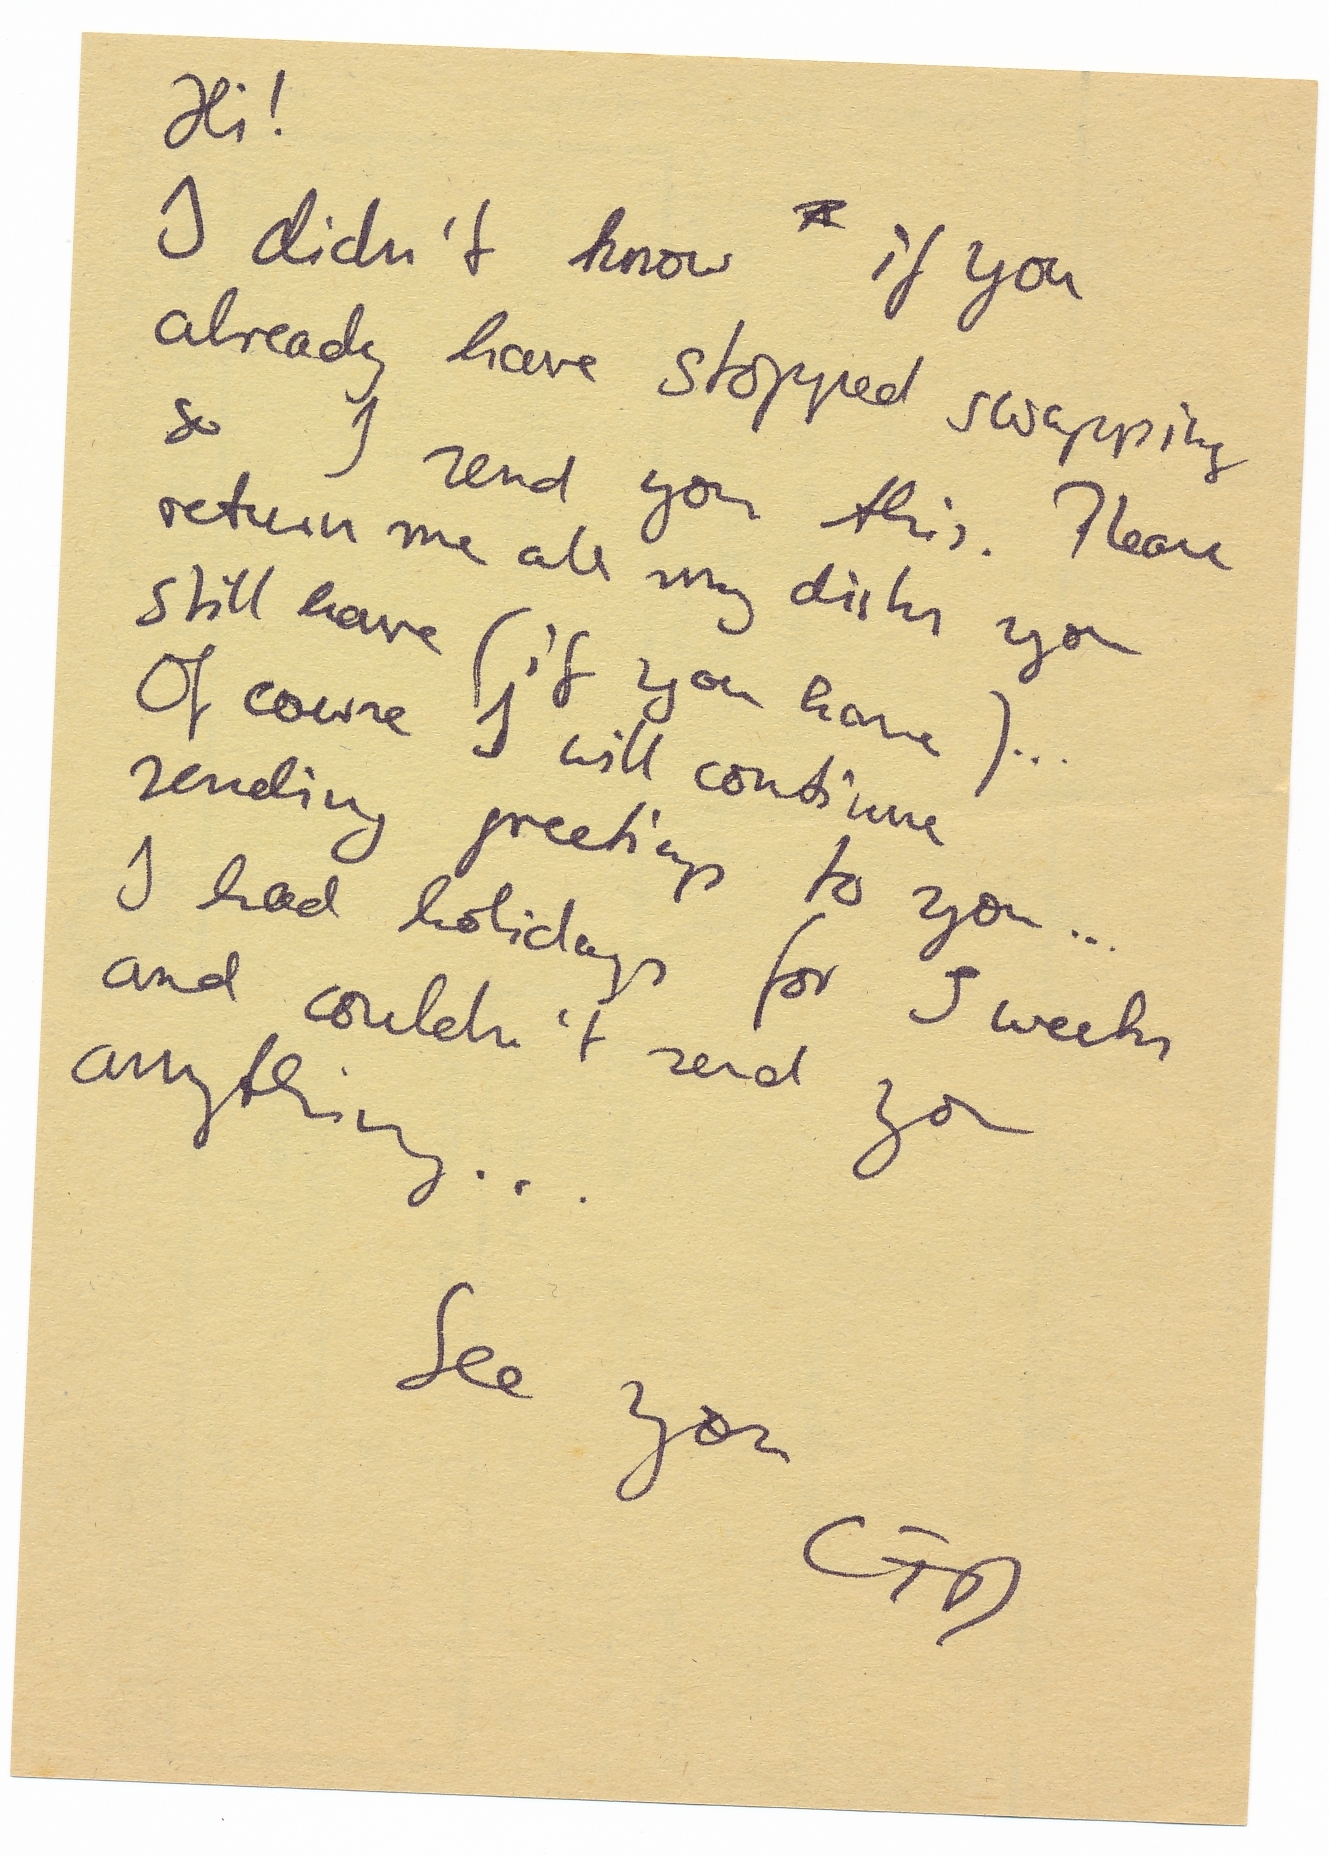 Hi!
I didn't know if you
already have stopped swapping
so I send you this. Please
return me all my disks you
still have (if you have)...
Of course I will continue
sending greetings to you...
I had holidays for 5 weeks
and couldn't send you
anything...
See you